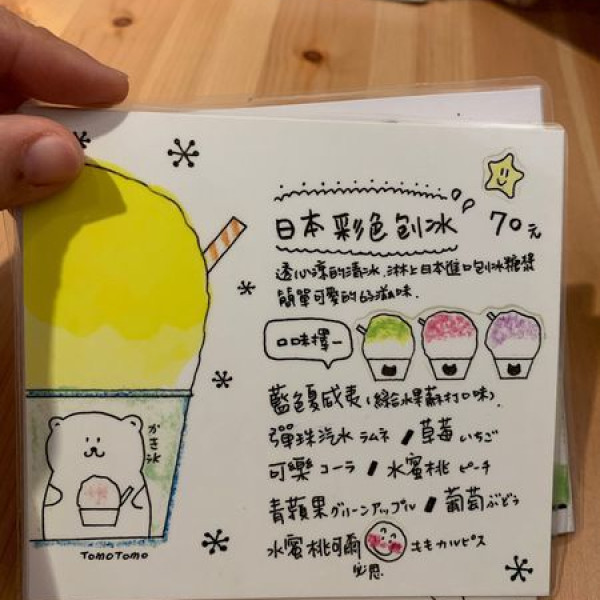 日本彩色刨冰 70元
透心涼的清冰,淋上日本進口刨冰糖漿
簡單可愛的好滋味.
口味擇一
藍色夏威夷(綜合水果蘇打口味).
彈珠汽水 ラムネ / 草莓 いちご
可樂 コーラ / 水蜜桃 ピーチ
青蘋果 グリーンアップル / 葡萄 ぶどう
水蜜桃可爾必思 ももカルピス
かき氷
TOMOTOMO